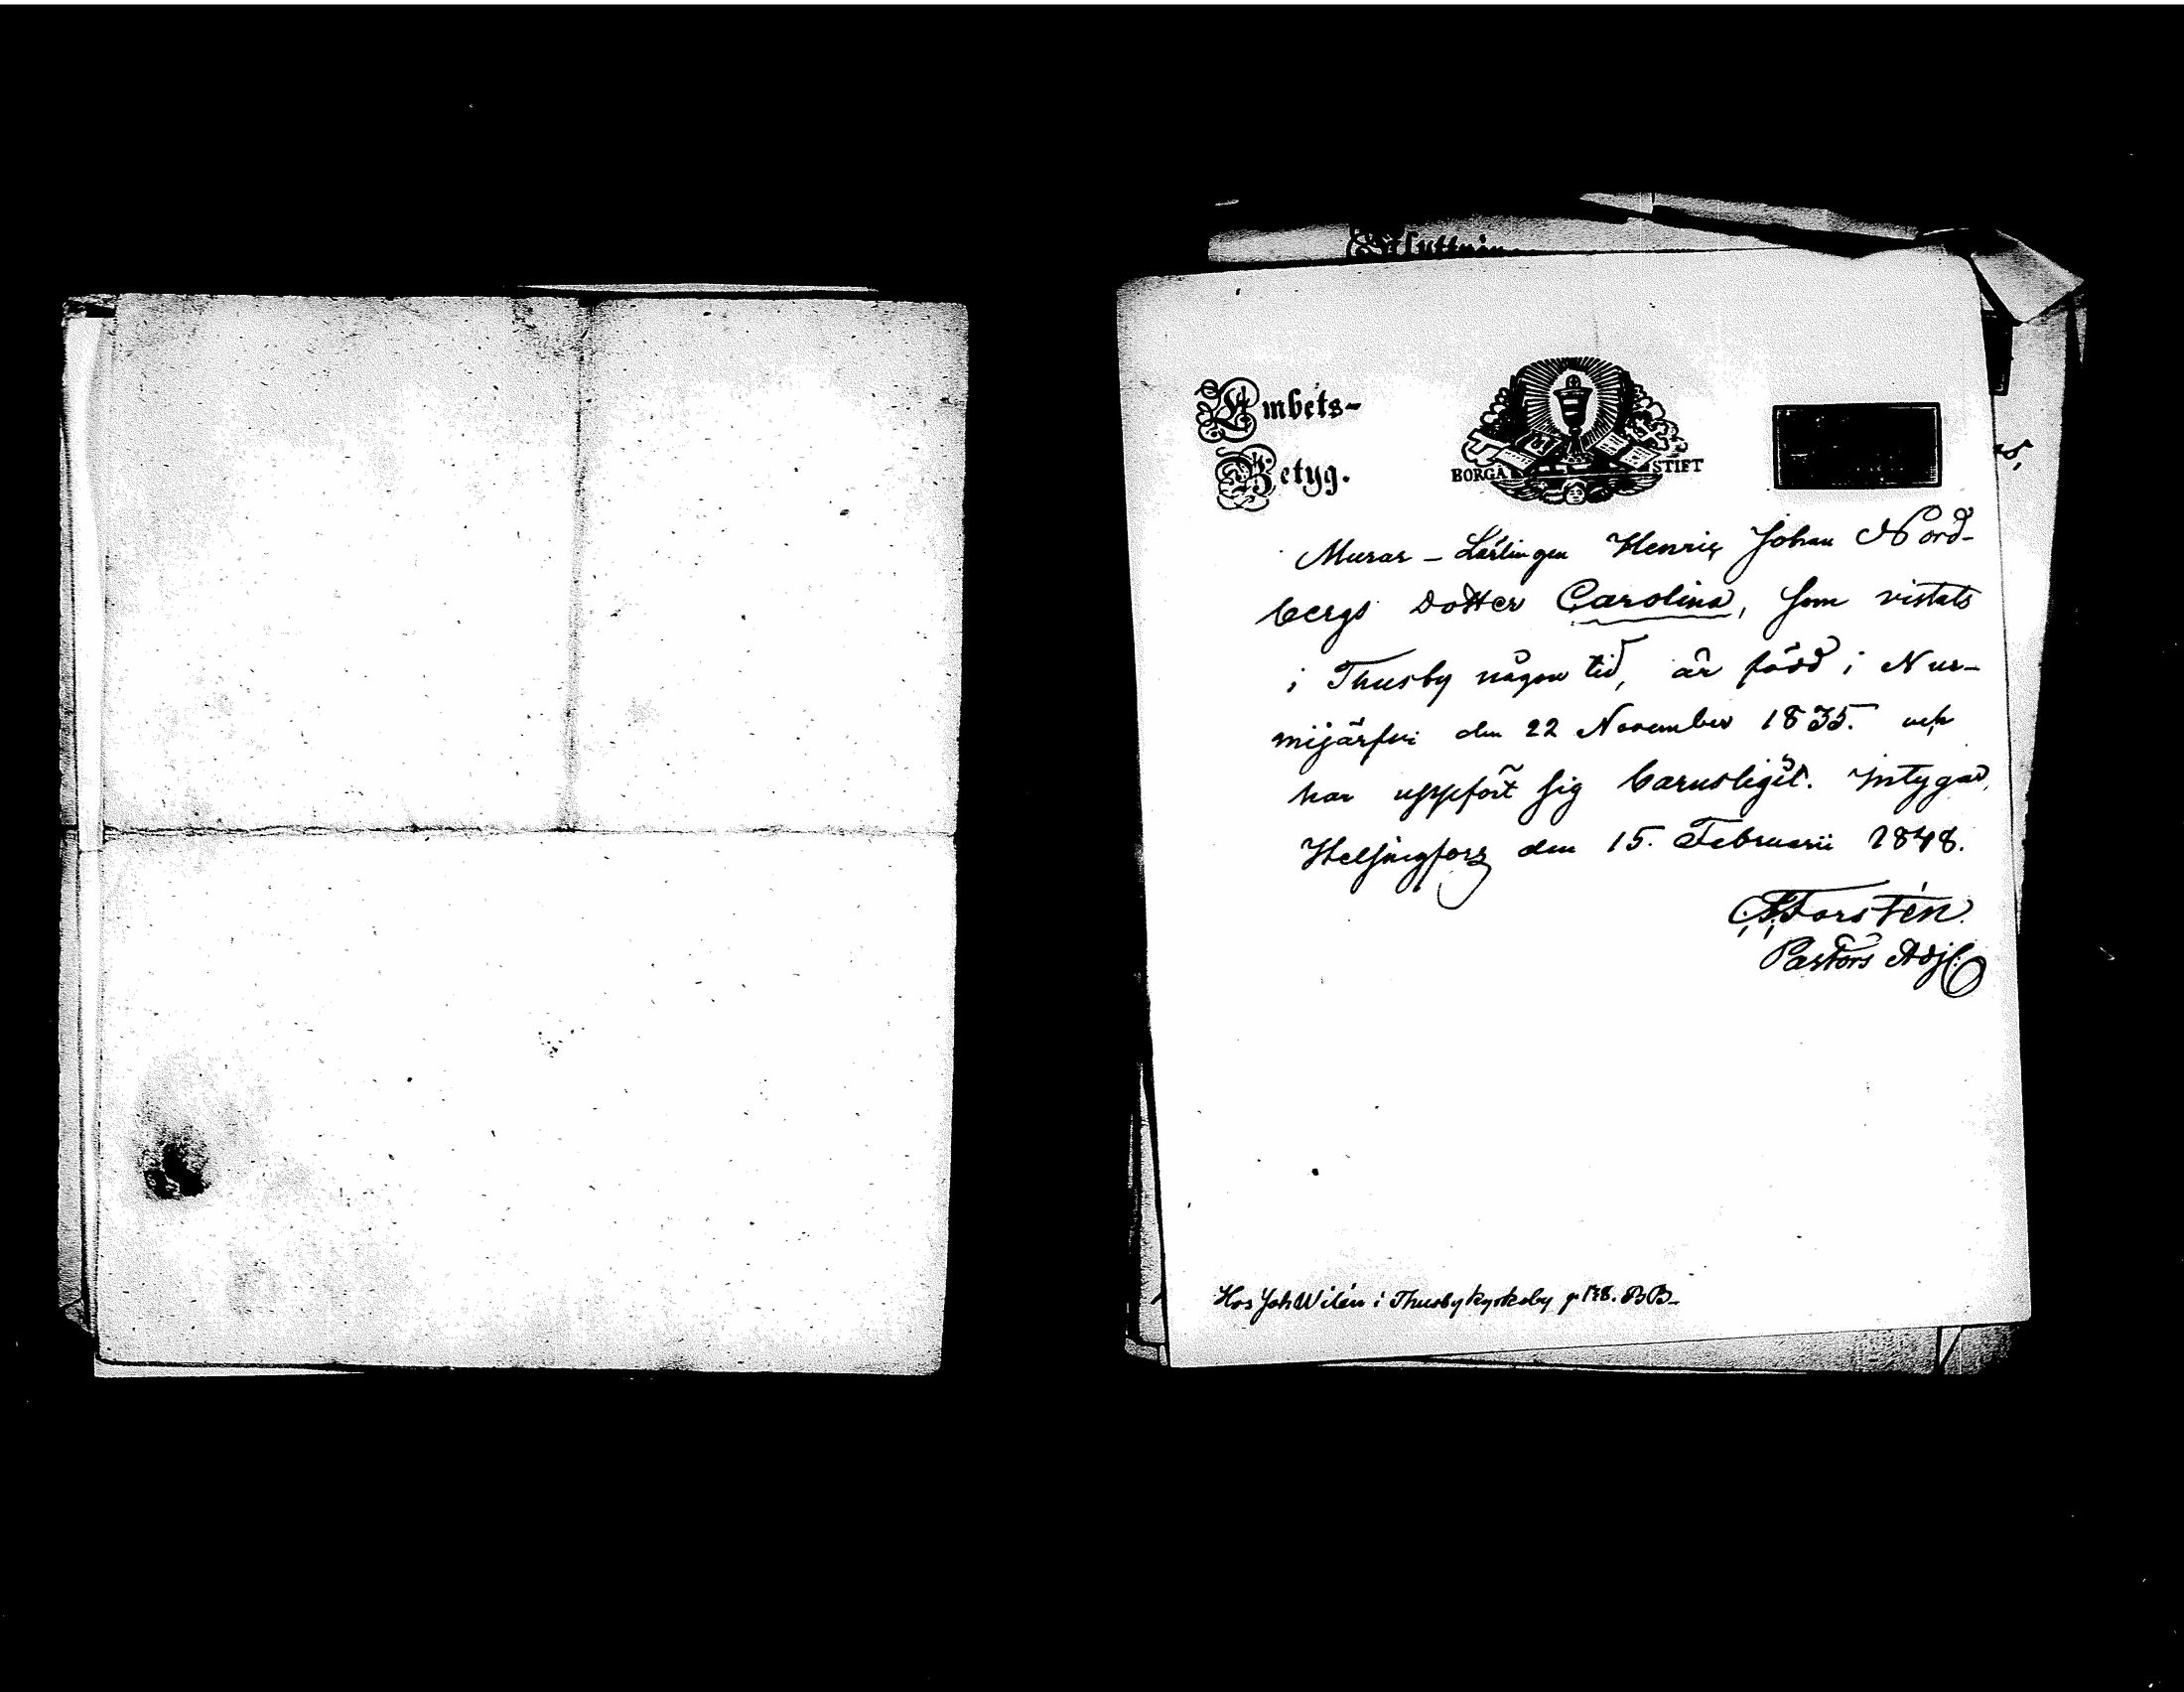 Utflyttnin
Embets-
Betyg.
BORGÅ STIFT
Murar-Lärlingen Henric Johan Nord-
bergs dotter Carolina, som vistats
i Thusby någon tid, är född i Nur-
mijärfvi den 22 November 1835. och
har uppfört sig barnsligit. Intygar,
Helsingfors den 15. Februarii 1848.
Forstén.
Pastors Adj:
Hos Joh Wilén i Thusby kyrkoby p 178. BB-